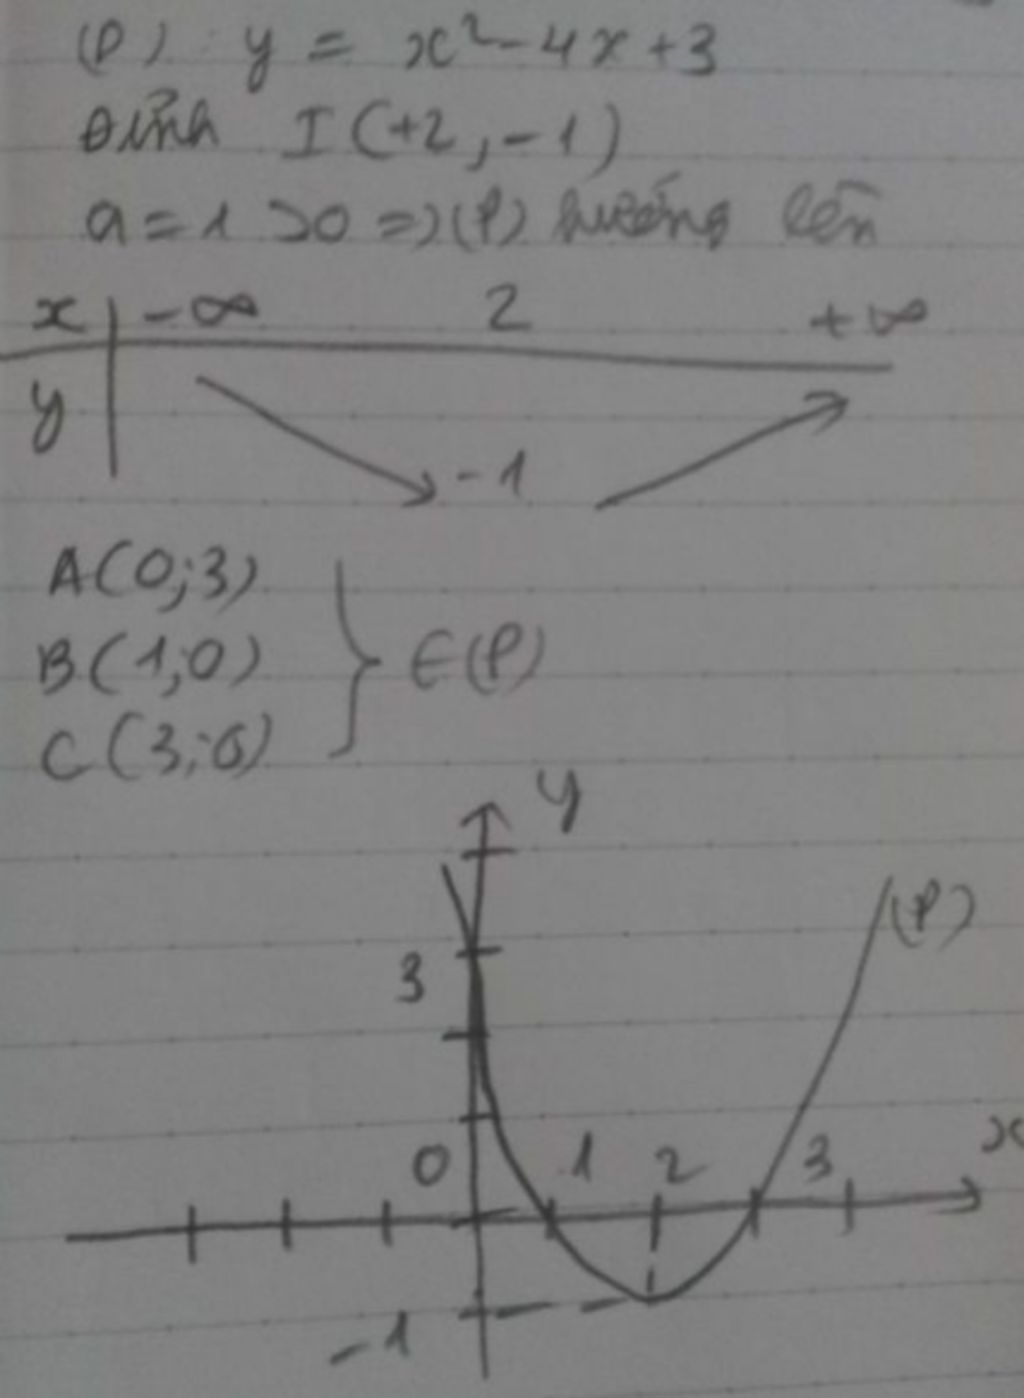 (P) y = x² - 4x + 3
Đỉnh I (+2, -1)
a = 1 > 0 => (P) hướng lên
x -∞ 2 +∞
y -1
A(0; 3)
B(1; 0)
C(3; 0)
∈ (P)
y
(P)
3
0 1 2 3 x
-1